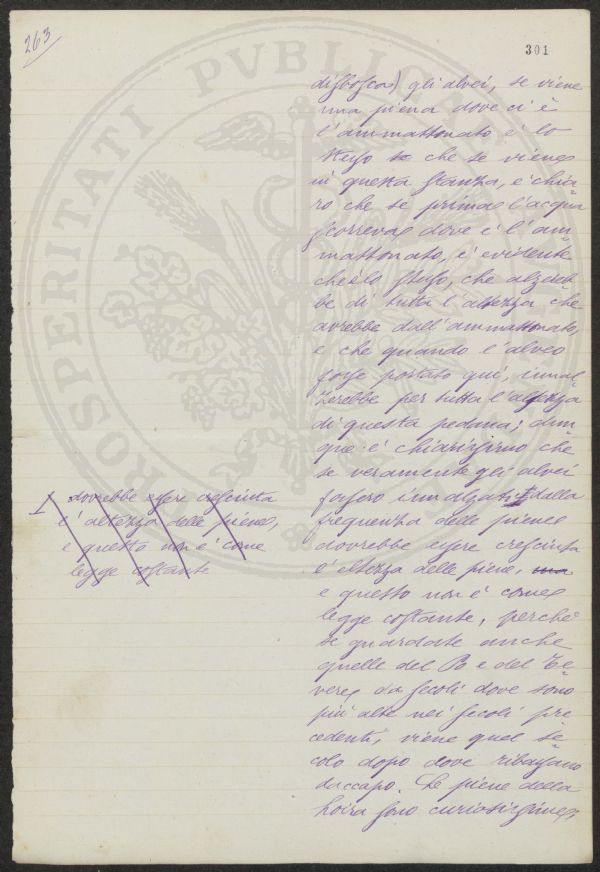 263
301
disbosca) gli alvei, se viene
una piena dove ci è
l'ammattonato è lo
stesso che se viene
in questa stanza, è chia-
ro che se prima l'acqua
scorreva dove è l'am-
mattonato, è evidente
che è lo stesso, che alzereb-
be di tutta l'altezza che
avrebbe dall'ammattonato,
e che quando l'alveo
fosse portato qui, innal-
zerebbe per tutta l'altezza
di questa pedana; dun-
que è chiarissimo che
se veramente gli alvei
fossero innalzati dalla
frequenza delle piene
dovrebbe essere cresciuta
l'altezza delle piene, ma
e questo non è come
legge costante, perchè
se guardate anche
quelle del Po e del Te-
vere da secoli dove sono
più alte nei secoli pre
cedenti, viene quel se-
colo dopo dove ribassano
daccapo. Le piene della
sono curiosissime
dovrebbe essere cresciuta
l'altezza delle piene,
e questo non è come
legge costante
PROSPERITATI PVBLICAE